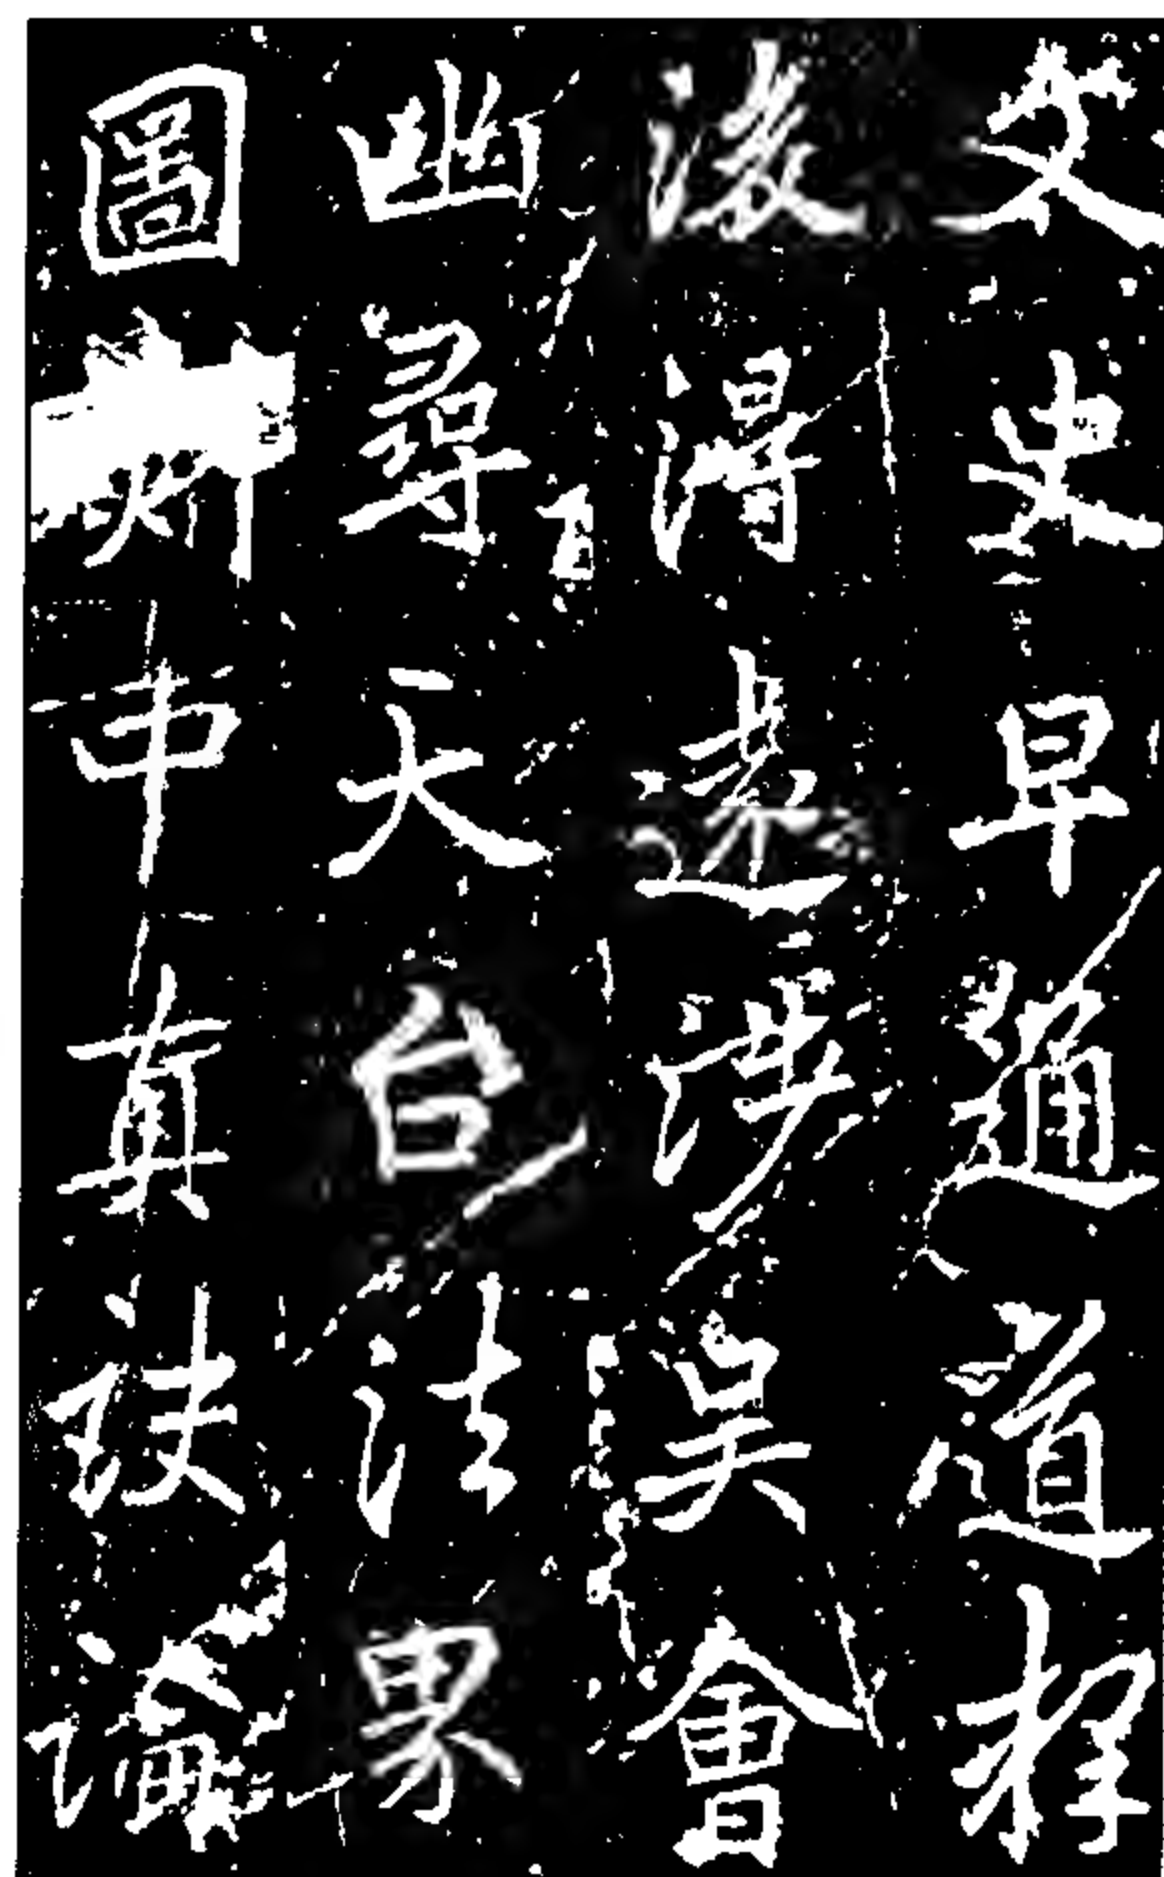 文史早通道释
後得遠涉吴會
幽尋天台法界
圖中真訣論